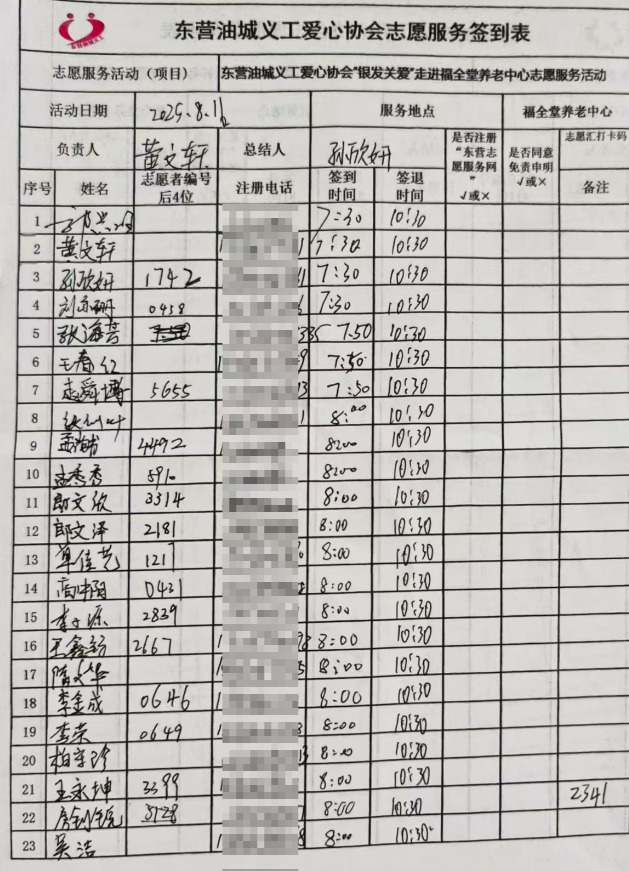 东营油城义工爱心协会志愿服务签到表
志愿服务活动（项目） 东营油城义工爱心协会“银发关爱”走进福全堂养老中心志愿服务活动
活动日期 2025.8.1 服务地点 福全堂养老中心
负责人 黄文轩 总结人 孙欣妍 是否注册“东营志愿服务网”√或× 是否同意免责申明√或× 志愿汇打卡码
序号 姓名 志愿者编号后4位 注册电话 签到时间 签退时间 备注
1 7:30 10:30
2 黄文轩 1 7:30 10:30
3 孙欣妍 1742 1 7:30 10:30
4 0438 7:30 10:30
5 张海芸 335 7:50 10:30
6 王春红 9 7:50 10:30
7 5655 13 7:50 10:30
8 1 8:00 10:30
9 4492 8:00 10:30
10 孟秀秀 5910 8:00 10:30
11 郎文欣 3314 8:00 10:30
12 郎文泽 2181 8:00 10:30
13 单佳艺 1217 8:00 10:30
14 0431 8:00 10:30
15 2839 8:00 10:30
16 王鑫 2667 8:00 10:30
17 8:00 10:30
18 李金成 0646 8:00 10:30
19 李荣 0649 8:00 10:30
20 13 8:00 10:30
21 王永坤 3399 8:00 10:30
22 5128 8:00 10:30 2341
23 吴洁 8 8:00 10:30